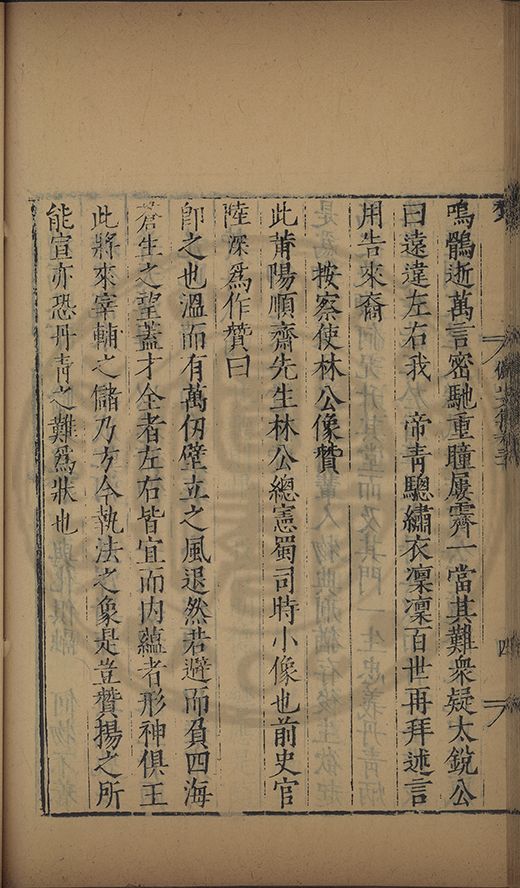 鳴鵩逝萬言密馳重瞳屢霽一當其難衆疑太銳公
曰遠違左右我 帝青驄繡衣凜凜百世再拜述言
用告來裔
按察使林公像贊
此莆陽順齋先生林公總憲蜀司時小像也前史官
陸深爲作贊曰
卽之也溫而有萬仞壁立之風退然若避而負四海
蒼生之望蓋才全者左右皆宜而内蘊者形神俱王
此將來宰輔之儲乃方今執法之象是豈贊揚之所
能宣亦恐丹青之難爲狀也
四